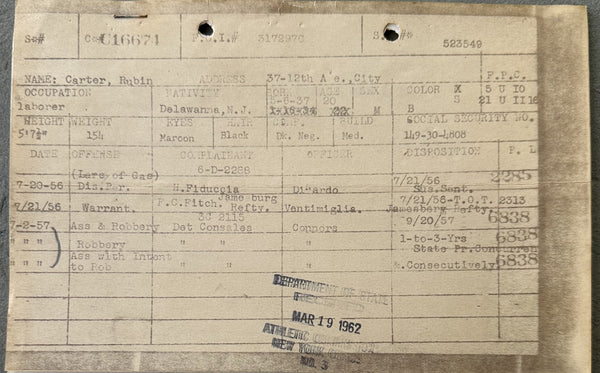 S.# C.# C16671 F.B.I.# 317297C S.B.# 523549
NAME: Carter, Rubin ADDRESS 37-12th A e., City F.P.C.
OCCUPATION NATIVITY BOR. AGE SEX COLOR X 5 U IO
laborer Delawanna, N.J. 5-6-37 20 M B S 21 U II 16
1-16-34 xxx
WEIGHT WEIGHT EYES HAIR COMP. BUILD SOCIAL SECURITY NO.
5'7½" 154 Maroon Black Dk. Neg. Med. 149-30-4808
DATE OFFENSE COMPLAINANT OFFICER DISPOSITION P. L
(Lars of Gas) 6-D-2288 7/21/56 2285
7-20-56 Dis.Per. H.Fiduccia Di ardo Sus.Sent.
7/21/56 Warrant. F.C.Fitch, Jame burg Refty. Ventimiglia. 7/21/56-T.O.T. 2313
Jamesburg Refty.
3C 2115
7-2-57 Ass & Robbery Det Consales Connors 9/20/57 6838
" " " Robbery " " " 1-to-3-Yrs 6838
State Pr.Concurren
" " " Ass with Intent to Rob " " " &.Consecutively 6838
DEPARTMENT OF STATE
MAR 19 1962
ATHLETIC
NEW YORK
NO. 3